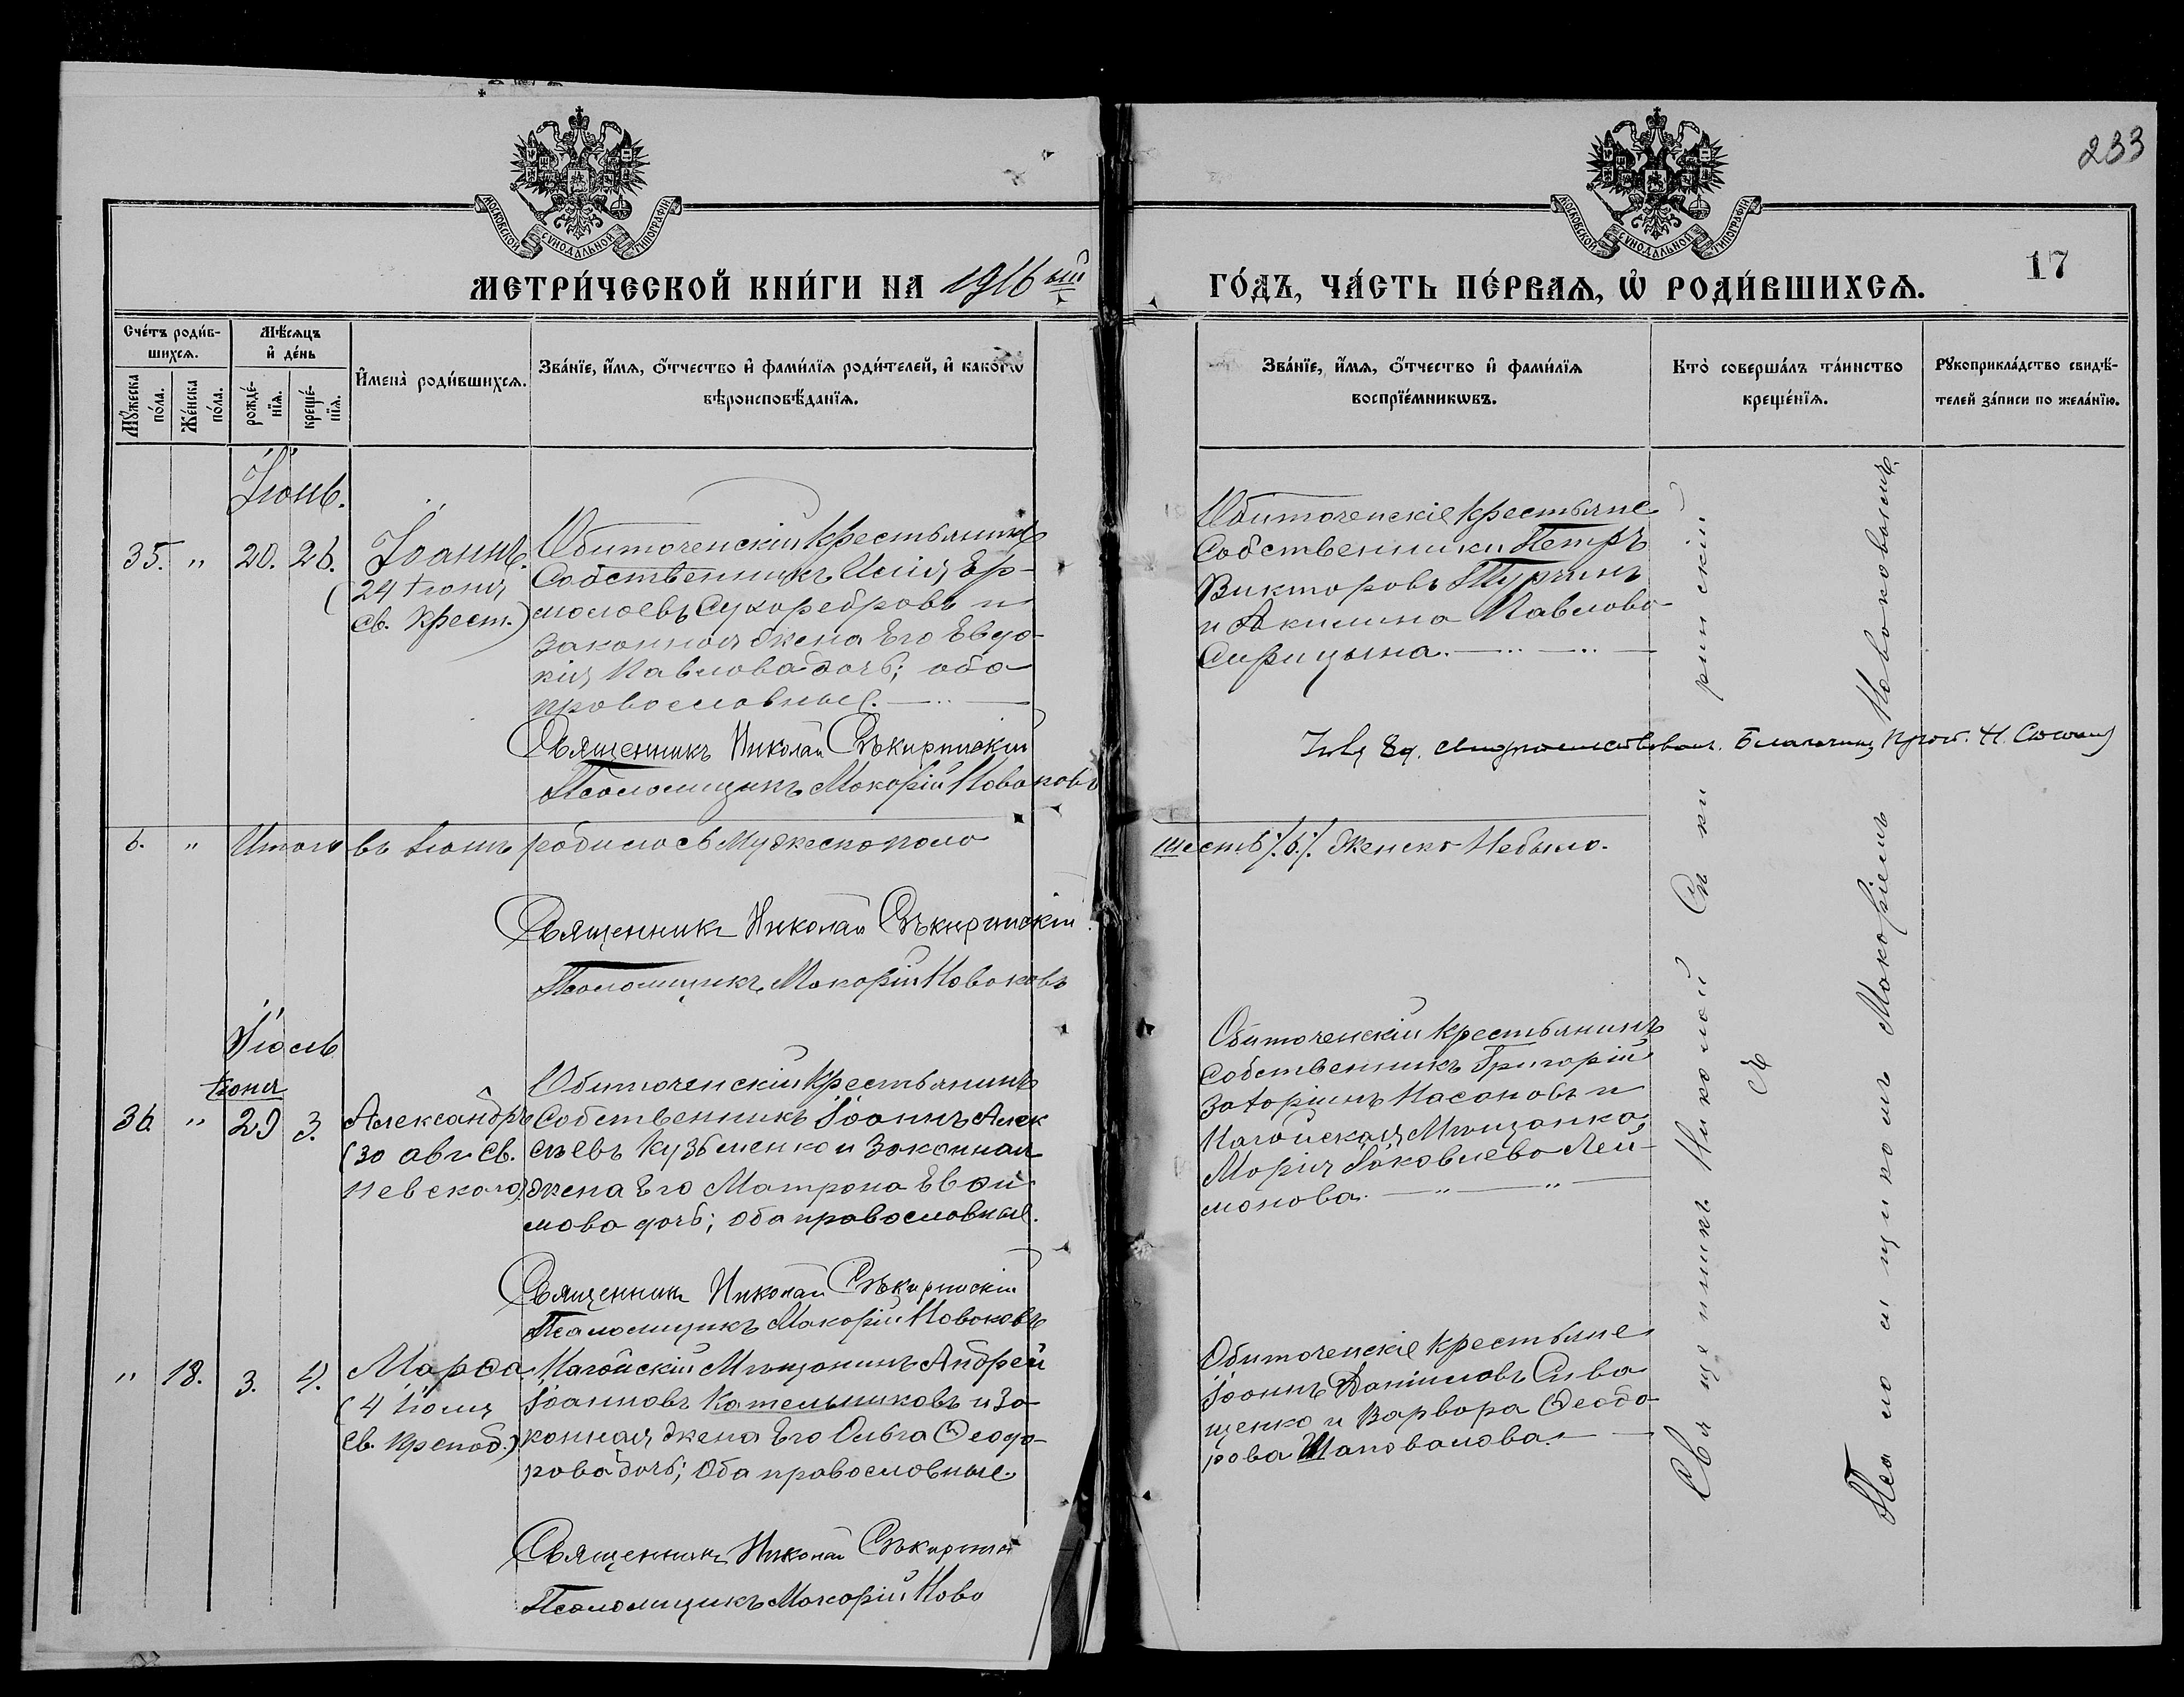 233
МОСКОВСКОЙ СѴНОДАЛЬНОЙ ТИПОГРАФІИ
МОСКОВСКОЙ СѴНОДАЛЬНОЙ ТИПОГРАФІИ
МЕТРИ́ЧЕСКОЙ КНИ́ГИ НА 1916 ый
ГО́ДЪ, ЧА́СТЬ ПЕ́РВАЯ, Ѽ РОДИ́ВШИХСЯ.
17
Сче́тъ роди́в-
шихся.
Мꙋ́жеска
по́ла.
Же́нска
по́ла.
Мѣ́сяцъ
и҆ де́нь
рожде́-
нїя.
креще́-
нїя.
И҆мена̀ роди́вшихся.
Зва́нїе, и҆́мя, ѻ҆́тчество и҆ фами́лїя роди́телей, и҆ како́гѡ
вѣроисповѣ́данїя.
Зва́нїе, и҆́мя, ѻ҆́тчество и҆ фами́лїя
воспрїе́мникѡвъ.
Кто̀ соверша́лъ та́инство
креще́нїя.
Рꙋкоприкла́дство свидѣ́-
телей за́писи по жела́нїю.
Іюнь.
35. " 20. 26.
Іоаннъ.
(24 Іюня
св. Крест.)
Обиточенскій Крестьянинъ
Собственникъ Илія Ер-
молаевъ Сухоребровъ и
законная жена Его Евдо-
кія Павлова дочь; оба
православные.
Священникъ Николай Сѣкиринскій
Псаломщикъ Макорій Новаковъ
Обиточенскіе Крестьяне
Собственники Петръ
Викторовъ Турчинъ
и Акилина Павлова
Сирицына.
Благочинный Прот. Н.
6. " Итого въ Іюнѣ родилось Мужеско пола
шесть /.6./. Женско Небыло.
Священникъ Николай Сѣкиринскій
Псаломщикъ Макорій Новаковъ
Іюль
Іюня
36. " 29 3.
Александръ
(30 авг. св.
Невскаго)
Обиточенскій Крестьянинъ
Собственникъ Іоаннъ Алек
сѣевъ Кузьменко и Законная
жена Его Матрона Евѳи
мова дочь; оба православные.
Священникъ Николай Сѣкиринскій
Псаломщикъ Макорій Новаковъ
Обиточенскій Крестьянинъ
Собственникъ Григорій
Насоновъ и
Ногайская Мѣщанка
Марія Іаковлева Лей-
монова.
" 18. 3. 4.
Марѳа
(4 Іюля
св. Препод.)
Ногайскій Мѣщанинъ Андрей
Іоанновъ Кательниковъ и За-
конная жена Его Ольга Ѳеодо-
рова дочь; Оба православные.
Священникъ Николай Сѣкиринскій
Псаломщикъ Макорій Ново
Обиточенскіе Крестьяне
Іоаннъ Даніиловъ Сива
щенко и Варвара Ѳеодо-
рова Шаповалова.
Священникъ Николай Сѣкиринскій
съ
Псаломщикомъ Макоріемъ Новаковымъ.